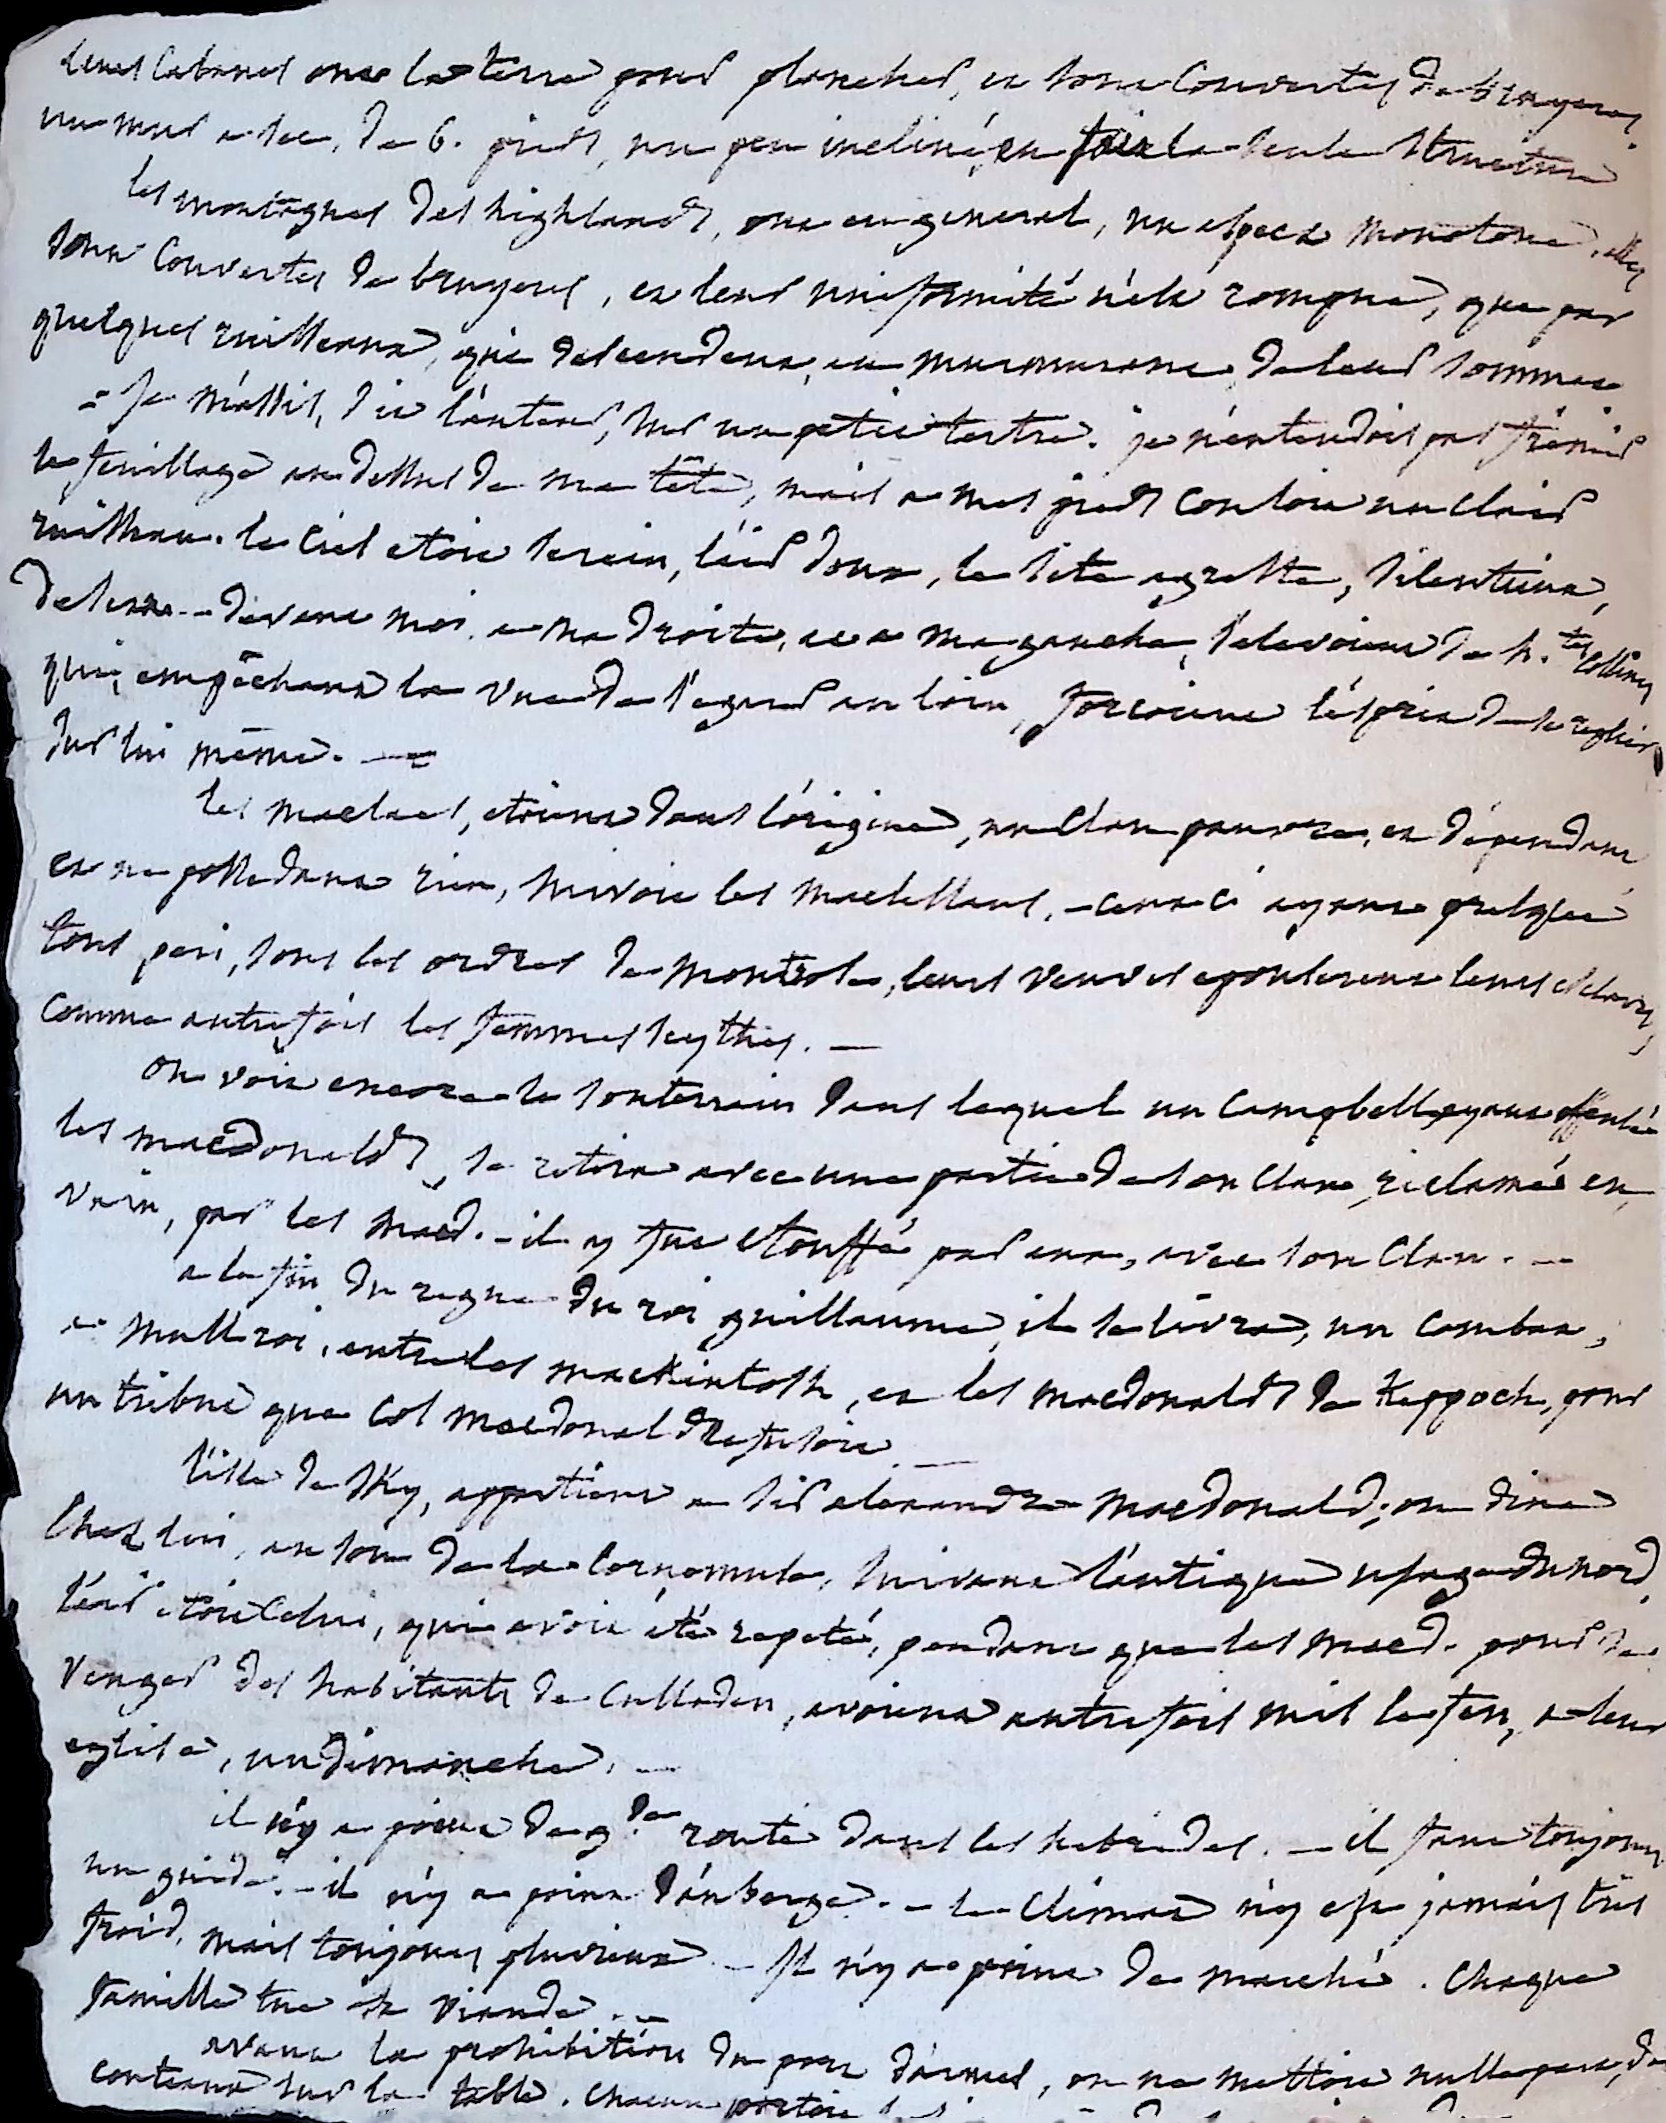 leurs cabanes ont la terre pour plancher, et sont couvertes de bruyeres.
un mur a sec, de 6. pieds, un peu incliné, en fait la seule structure
les montagnes des highlands, ont en general, un aspect monotone, elles
sont couvertes de bruyeres, et leur uniformité n'est rompue, que par
quelques ruisseaux, qui descendent, en murmurant, de leur sommet
= Je m'assis, dit l'auteur, sur un petit tertre. je n'entendois pas fremir
le feuillage au dessus de ma tête, mais a mes pieds couloit un clair
ruisseau. le ciel etoit serein, l'air doux, le site agreste, silentieux,
desert -- devant moi, a ma droite, et a ma gauche, s'elevoient de h.tes collines
qui, empêchant la vue de s'egarer au loin, forçoient l'esprit de se replier
sur lui même. —
les macraes, etoient dans l'origine, un clan pauvre, et dépendant
et ne possedant rien, suivoit les maclellans. - ceux ci ayant presque
tous peri, sous les ordres de montrose, leurs veuves epouserent leurs esclaves,
comme autrefois les femmes scythes. —
on voit encore le souterrain dans lequel un campbell ayant offensé
les macdonalds, se retira avec une partie de son clan, réclamé en
vain, par les macd. - il y fut etouffé par eux, avec son clan. —
a la fin du regne du roi guillaume, il se livra, un combat,
a mullroi, entre les mackintosh, et les macdonalds de Keppoch, pour
un tribut que col macdonald refusoit. —
l'isle de sky, appartient a sir alexandre macdonald; on dina
chez lui, au son de la cornemuse, suivant l'antique usage du nord.
l'air etoit celui, qui avoit été repeté, pendant que les macd. pour se
venger des habitants de culloden, avoient autrefois mis le feu, a leur
eglise, un dimanche. —
il n'y a point de g.de route dans les hebrides. - il faut toujours
un guide. - il n'y a point d'auberge. - le climat n'y est jamais très
froid, mais toujours pluvieux - Il n'y a point de marché. chaque
famille tue sa viande. —
avant la prohibition du port d'armes, on ne mettoit nulle part, de
couteaux sur la table. chacun portoit